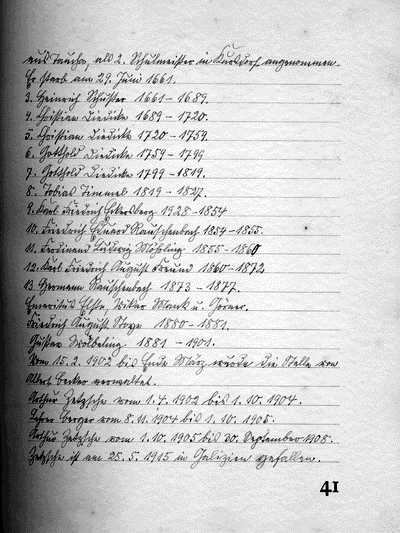 aus Taucha, als 2. Schulmeister in Kursdorf angenommen.
Er starb am 29. Juni 1661.
3. Heinrich Schuster 1661 – 1689.
4. Christian Diedicke 1689 – 1720.
5. Christian Diedicke 1720 – 1759.
6. Gotthold Diedicke 1759 – 1799
7. Gotthold Diedicke 1799 – 1819.
8. Tobias Timmel 1819 – 1827.
9. Karl Friedrich Eckersberg 1928 – 1854
10. Friedrich Eduard Rauschenbach 1854 – 1855.
11. Ferdinand Ludwig Möhling 1855 – 1860
12. Karl Friedrich August Freund 1860 – 1872
13. Hermann Rauschenbach 1873 – 1877.
Emeritus Elste, Vikar Mank u. Görner.
Friedrich August Stoye 1880 – 1881.
Gustav Wölbeling 1881 – 1901.
Vom 15. 2. 1902 bis Ende März wurde die Stelle von
Albert Becker verwaltet.
Arthur Zetzsche vom 1. 4. 1902 bis 1. 10. 1904.
Lehrer Berger vom 8. 11. 1904 bis 1. 10. 1905.
Arthur Zetzsche vom 1. 10. 1905 bis 30. September 1908.
Zetzsche ist am 25. 5. 1915 in Galizien gefallen.
41